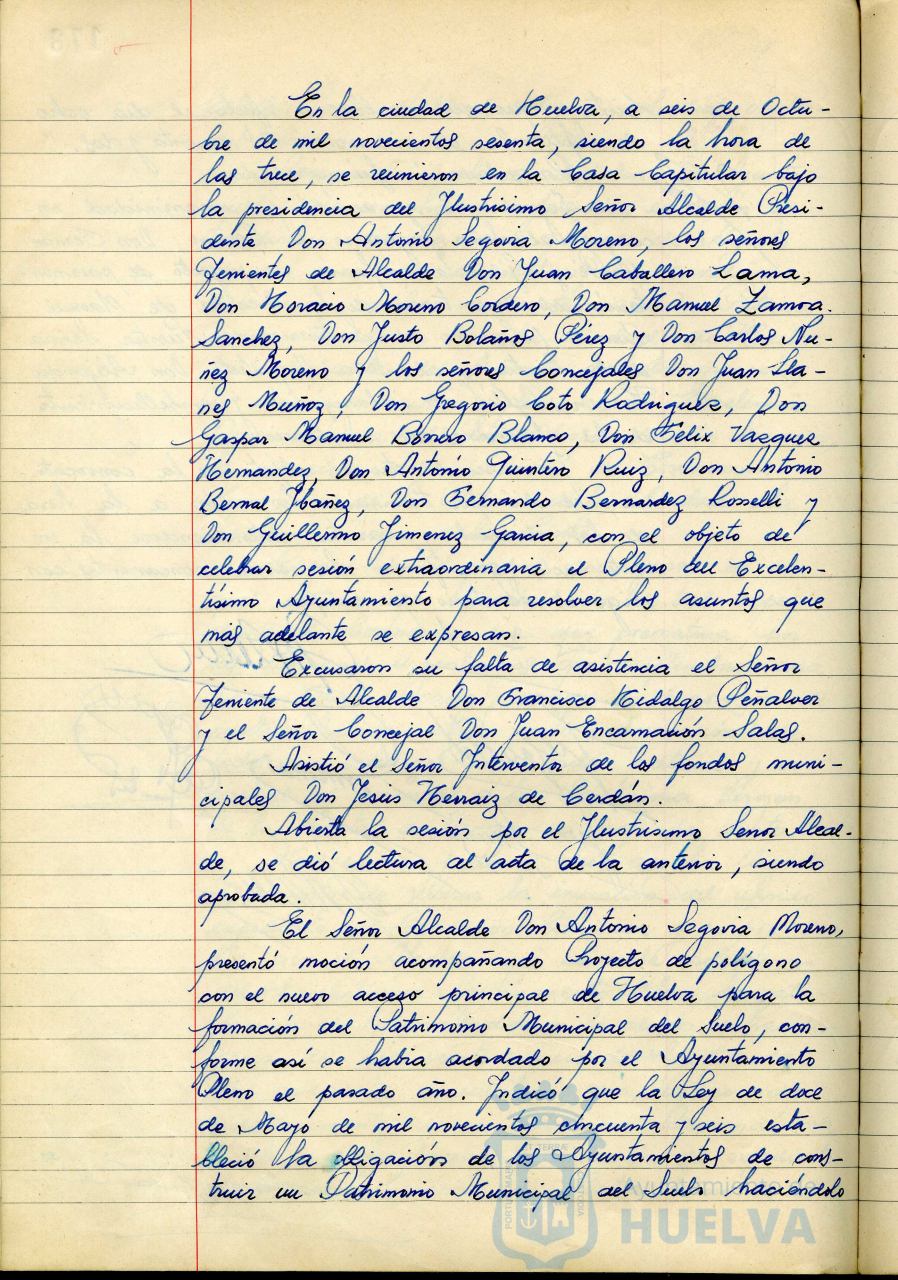 En la ciudad de Huelva, a seis de Octu-
bre de mil novecientos sesenta, siendo la hora de
las trece, se reunieron en la Casa Capitular bajo
la presidencia del Ilustrisimo Señor Alcalde Presi-
dente Don Antonio Segovia Moreno, los señores
Tenientes de Alcalde Don Juan Caballero Lama,
Don Horacio Moreno Cordero, Don Manuel Zamora
Sanchez, Don Justo Bolaños Pérez y Don Carlos Nu-
ñez Moreno y los señores Concejales Don Juan Lla-
nes Muñoz, Don Gregorio Coto Rodriguez, Don
Gaspar Manuel Borrero Blanco, Don Felix Vazquez
Hernandez, Don Antonio Quintero Ruiz, Don Antonio
Bernal Ybáñez, Don Fernando Bernardez Rosselli y
Don Guillermo Jimenez Garcia, con el objeto de
celebrar sesión extraordinaria el Pleno del Excelen-
tísimo Ayuntamiento para resolver los asuntos que
más adelante se expresan.
Excusaron su falta de asistencia el Señor
Teniente de Alcalde Don Francisco Hidalgo Peñalver
y el Señor Concejal Don Juan Encarnación Salas.
Asistió el Señor Interventor de los fondos muni-
cipales Don Jesús Herraiz de Cerdán.
Abierta la sesión por el Ilustrisimo Senor Alcal-
de, se dió lectura al acta de la anterior, siendo
aprobada.
El Señor Alcalde Don Antonio Segovia Moreno,
presentó moción acompañando Proyecto de polígono
con el nuevo acceso principal de Huelva para la
formación del Patrimonio Municipal del Suelo, con-
forme así se habia acordado por el Ayuntamiento
Pleno el pasado año. Indicó que la Ley de doce
de Mayo de mil novecientos cincuenta y seis esta-
bleció la obligación de los Ayuntamientos de cons-
truir un Patrimonio Municipal del Suelo haciéndolo
Ayuntamiento de
HUELVA